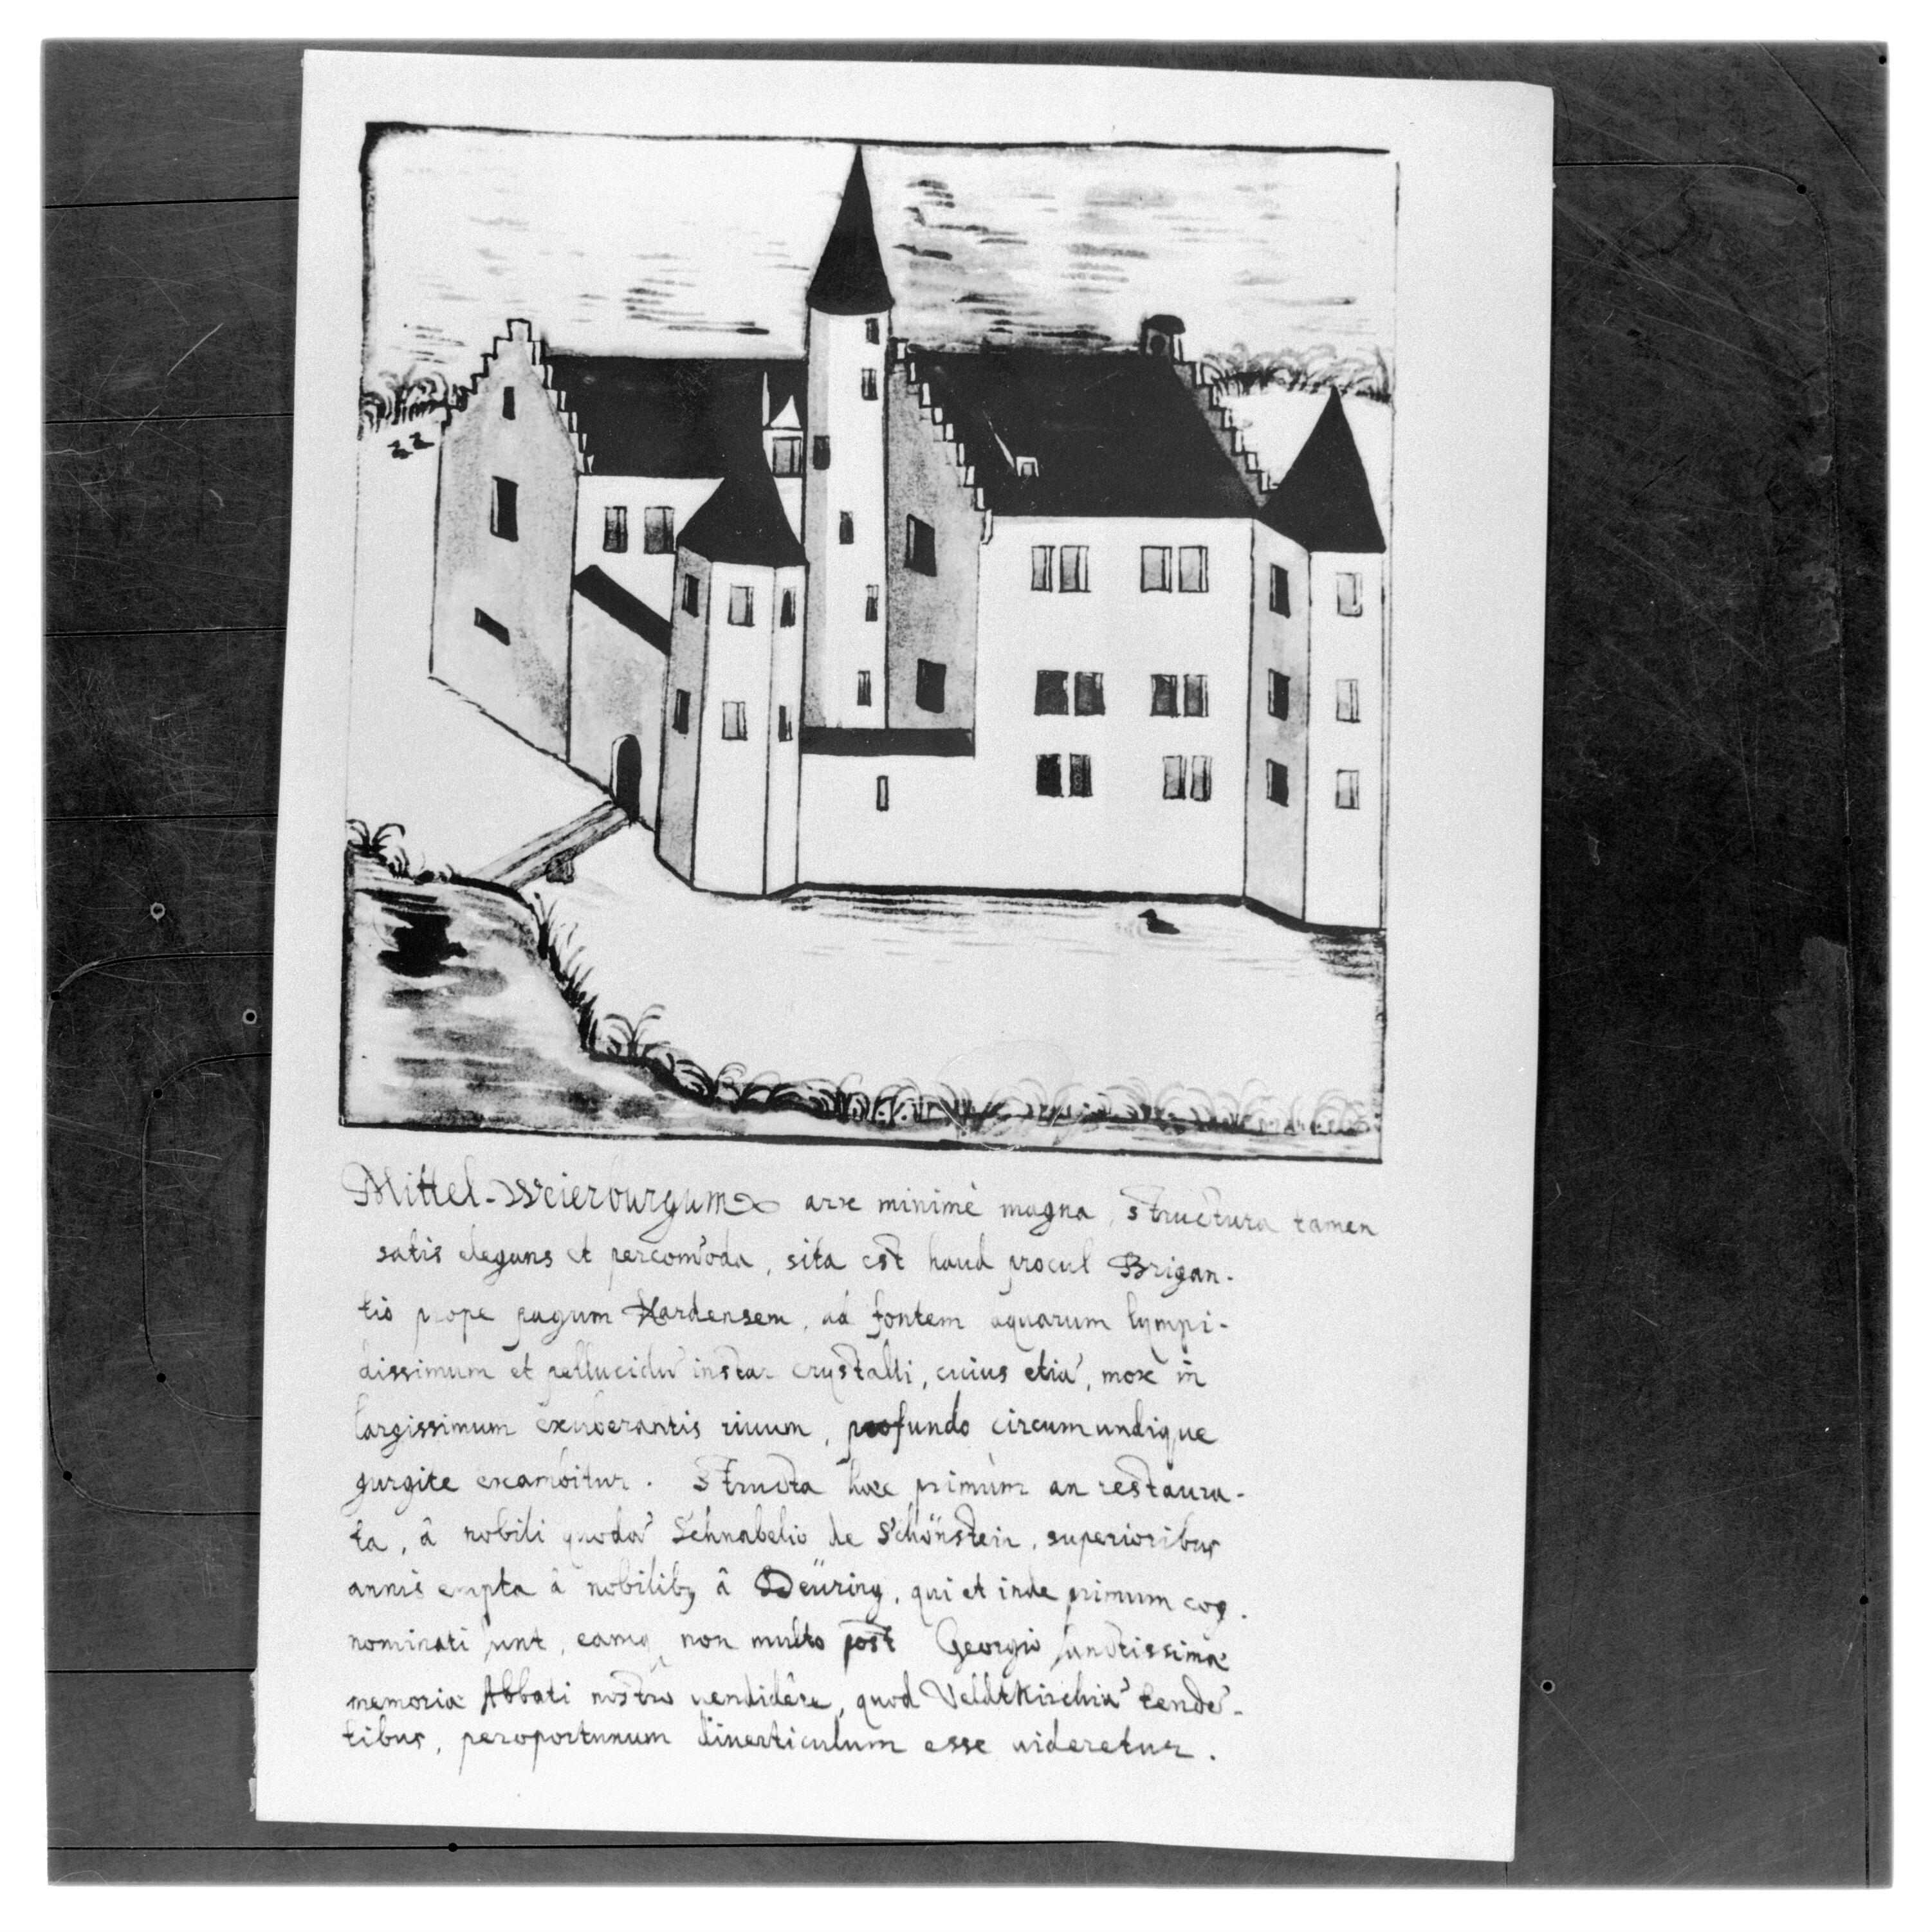 Mittel-Weierburgum arx minimè magna, structura tamen
satis elegans et percom̃oda, sita est haud procul Brigan-
tio prope pagum Hardensem, ad fontem aquarum lympi-
dissimum et pellucidũ instar crystalli, cuius etiã, mox in
largissimum exuberantis riuum, profundo circumundique
gurgite exambitur. Structa haec primùm an restaura-
ta, â nobili quodã Schnabelio de Schönstein, superioribus
annis empta â nobilibꝫ â Deüring, qui et inde primum cog-
nominati sunt, eamqꝫ non multo post Georgio sanctissimæ
memoriæ Abbati nostro uendidêre, quod Veldtkirchiã tendẽ-
tibus, peroportunum diuerticulum esse uideretur.